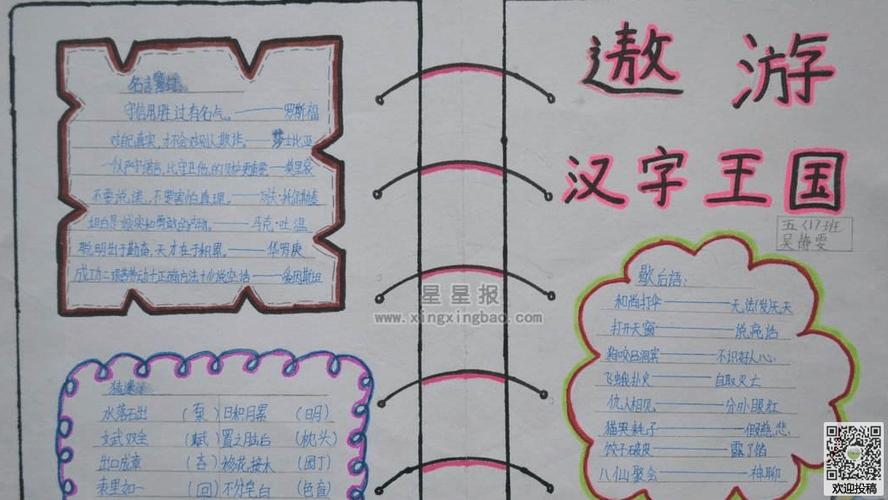 名言警句
守信用胜过有名气。——罗斯福
对自己真实,才不会对别人欺诈。——莎士比亚
——莫里哀
不要说谎,不要害怕真理。——列夫·托尔斯泰
坦白是诚实和勇敢的产物。——马克·吐温
聪明出于勤奋,天才在于积累。——华罗庚
成功=艰苦劳动+正确方法+少说空话——爱因斯坦
水落石出(泵)日积月累(日月)
文武双全(斌)置之脑后(枕头)
出口成章(杏)移花接木(园丁)
表里如一(回)不分皂白(色盲)
遨游
汉字王国
五(1)班
吴静雯
歇后语:
和尚打伞——无法(发)无天
打开天窗——说亮话
狗咬吕洞宾——不识好人心
飞蛾扑火——自取灭亡
仇人相见——分外眼红
猫哭耗子——假慈悲
饺子破皮——露了馅
八仙聚会——神聊
星星报
www.xingxingbao.com
欢迎投稿